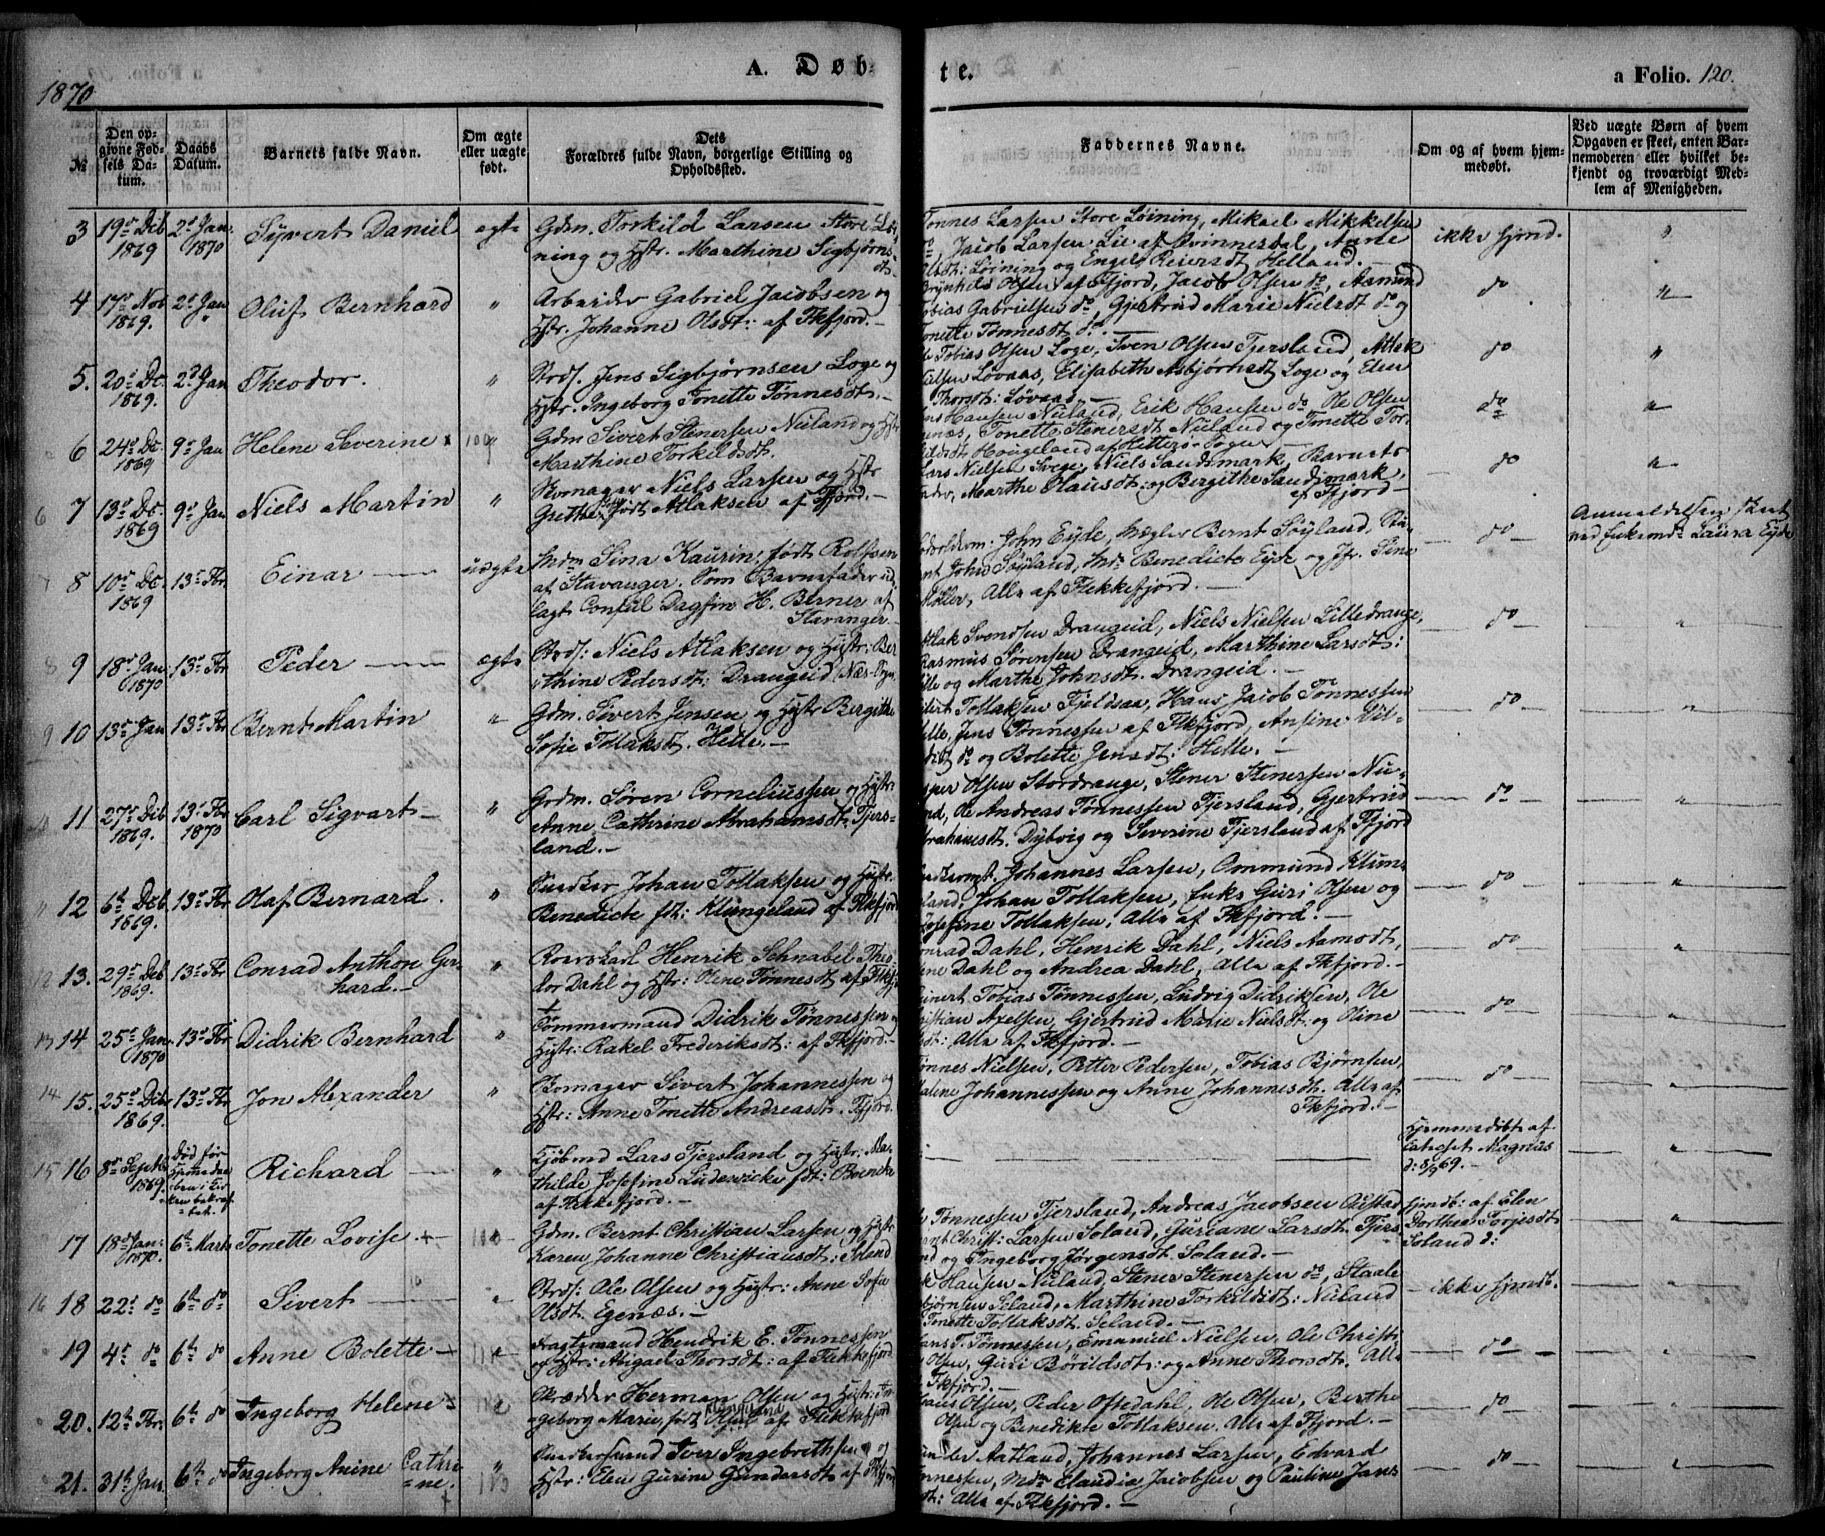 1870
A. Døb-
te.
a Folio. 120.
№
Den opgivne Fødsels Datum.
Daabs Datum.
Barnets fulde Navn.
Om ægte eller uægte født.
Dets Forældres fulde Navn, borgerlige Stilling og Opholdssted.
Faddernes Navne.
Om og af hvem hjemmedøbt.
Ved uægte Børn af hvem Opgaven er skeet, enten Barnemoderen eller hvilket bekjendt og troværdigt Medlem af Menigheden.
3 19de Dcb 1869 2d Jan: 1870 Syvert Daniel ægte
Gdm. Torkild Larsen Store Løi-
ning og Hstr. Marthine Sigbjørns-
dt.
Tønnes Larsen Store Løining, Mikael Mikkelsen
do, Jacob Larsen Lie af Qvinnesdal, Anne
Olsdt: Løining og Engel Reiersdt Helland.—
ikke hjmd.
"
4 17de Nob 1869. 2d Jan Oluf Bernhard "
Arbeider Gabriel Jacobsen og
Hstr. Johanne Olsdt: af Fkfjord.—
Brynhild Olsen af Ffjord, Jacob Olsen do, Aasmund
Tobias Gabrielsen do, Gjertrud Marie Nielsdt do og
Tonette Tønnesdt do.—
do
"
5. 20de Dc. 1869. 2d Jan Theodor. "
Strds. Jens Sigbjørnsen Loge og
Hstr. Ingeborg Tonette Tønnesdt.—
Tobias Olsen Loge, Sven Olsen Tjersland, Atlak
Nilsen Løvaas, Elisabeth Asbjørnsdt Loge og Elen
Thorsdt: Løvaas—
do
"
6 24de Dc. 1869 9de Jan Helene Severine x 109 "
Gdm Sivert Stenersen Nuland og Hstr
Marthine Torkildsdt.
Hansen Nuland, Erik Hansen do. Ole Olsen
Egenæs, Tonette Stenersdt Nuland og Tonette Tor-
kildsdt Hougeland af Hitterø Sogn—
do
"
6 7 13de Dc. 1869 9de Jan Niels Martin "
Skomager Niels Larsen og Hstr
Grethe født Atlaksen af Ffjord.—
Lars Nielsen Svege, Niels Sandsmark, Barnets
Fader, Marthe Olausdt: og Bergithe Sandsmark,
af Ffjord—
do
"
7 8 10de Dc. 1869 13de Fbr Einar — uægte
Mdm Sina Kaurin, født Rolfsen
af Stavanger. Som Barnefader ud
lagt Consul Dagfin H. Berner af
Stavanger.
John Eyde, Mægler Bernt Søyland, Stu-
dent John Søyland, Mdm Benedicte Eyde og Jfr. Sine
Møller, Alle af Flekkefjord.—
do
Anmeldelsen skeet
ved Enkemd: Laura Eyde
8 9 18de Jan: 1870 13de Fbr Peder — ægte
Strds: Niels Atlaksen og Hustr: Ber
githine Pedersdt: Drangeid (Næs-Sogn
Atlak Svendsen Drangeid, Niels Nielsen Lilledrange,
Rasmus Sørensen Drangeid, Marthine Larsdt:
Lille og Marthe Johnsdt. Drangeid.—
do
"
9 10 13de Jan 13de Fbr Bernt Martin "
Gdm. Sivert Jensen og Hustr Bergitte
Sofie Tollaksdt. Helle.—
Sivert Tollaksen Fjeldsaa, Hans Jacob Tønnessen
Helle, Jens Tønnessen af Fkfjord, Ansine Wil-
do og Bolette Jensdt: Helle.—
do
"
10 11 27de Dcb 1869. 13de Fbr 1870 Carl Sigvart— "
Grdm. Søren Corneliussen og Hustr:
Anne Cathrine Abrahamsdt: Tjers-
land.—
Jesper Olsen Stordrange, Stener Stenersen Nu-
land, Ole Andreas Tønnessen Tjersland, Gjertrud
Abrahamsdt. Dybvig og Severine Tjersland af Ffjord
do
"
11 12 6te Dcb 1869. 13de Fbr Olaf Bernard. "
Snedker Johan Tollaksen og Hustr:
Benedicte fdt: Klungeland af Fkfjord
Johannes Larsen, Ommund Klun-
geland, Johan Tollaksen, Enke Guri Olsen og
Josefine Tollaksen, Alle af Fkfjord.—
do
"
12 13. 29de Dcb 1869. 13de Fbr Conrad Anthon Ger-
hard.— "
Roerskarl Henrik Schnabel Theo-
dor Dahl og Hstr: Olene Tønnesdt af Fkfj
Conrad Dahl, Henrik Dahl, Niels Aamodt,
Dahl og Andrea Dahl, Alle af Fkfjord.—
do
"
13 14 25de Jan. 1870 13de Fbr Didrik Bernhard "
Tømmermand Didrik Tønnessen og
Hustr: Rakel Frederiksdt: af Fkfjord:—
Reinert Tobias Tønnessen, Ludvig Didriksen, Ole
Christian Axelsen, Gjertrud Marie Nielsdt: og Oline
dt: Alle af Fkfjord.—
do
"
14 15. 25de Dcb 1869. 13de Fbr Jon Alexander "
Skomager Sivert Johannessen og
Hstr: Anne Tonette Andreasdt. Ffjord.
Tønnes Nielsen, Petter Pedersen, Tobias Bjørnsen,
Malene Johannessen og Anne Johannesdt. Alle af
Fkfjord.—
do
"
15 16 8de Septb 1869. Død før Hjemmedaaben i Kirken bekræftet. Richard — "
Kjøbmd Lars Tjersland og Hustr: Ma-
thilde Josefine Ludewicke fdt: Boencke
af Flekkefjord.—
Hjemmedøbt af
Catechet Magnus
d: 8/9 69.—
"
17 18de Jan: 1870. 6te Marts Tonette Lovise. + 110
Gdm. Bernt Christian Larsen og Hstr
Karen Johanne Christiansdt: Soland
Tønnessen Tjersland, Andreas Jacobsen Austad
Bernt Christ: Larsen Soland, Guriane Larsdt. Tjers-
land og Ingeborg Jørgensdt. Soland.—
Hjmdt: af Elen
Dorthea Torjesdt
Soland d:
"
16 18 22d do 6te do Sivert — "
Strds: Ole Olsen og Hustr: Anne Sofie
Olsdt. Egenæs:—
Erik Hansen Nuland, Stener Stenersen do, Staale
Sigbjørnsen Seland, Marthine Torkildsdt: Nuland
Tonette Tollaksdt. Seland.—
ikke hjmdt.
"
19 4de do 6te do Anne Bolette— 111
Fragtemand Hendrik E. Tønnessen
og Hstr: Abigael Thorsdt: af Flekkefjord
Hans T. Tønnessen, Emanuel Nielsen, Ole Christi
Olsen, Guri Bórildsdt: og Anne Thorsdt. Alle
Fkfjord.—
do
"
20. 12te Fbr. 6te do Ingeborg Helene 112
Skrædder Herman Olsen og Hustr: In-
geborg Marie, født af Flekkefjord
Claus Olsen, Peder Oftedahl, Ole Olsen, Berthe
Olsen og Benedikte Tollaksen. Alle af Ffjord.—
do
"
21. 31te Jan. 6te do Ingeborg Anine Cathri
ne. + " 113
Snedkersvend Iver Ingebrethsen og
Hstr: Elen Gurine Gundersdt af Fkfjord
Aatland, Johannes Larsen, Edvard
Tønnessen, Mdm Claudia Jacobsen og Pauline Jans
dt: Alle af Fkfjord.—
do
"